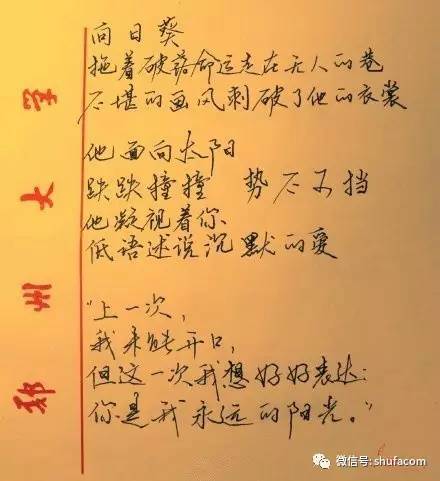 向日葵
拖着破落命运走在无人的巷
不堪的画风刺破了他的衣裳
他面向太阳
跌跌撞撞 势不可挡
他凝视着你
低语述说沉默的爱
"上一次，
我未能开口，
但这一次我想好好表达：
你是我永远的阳光。"
郑州大学
微信号: shufacom